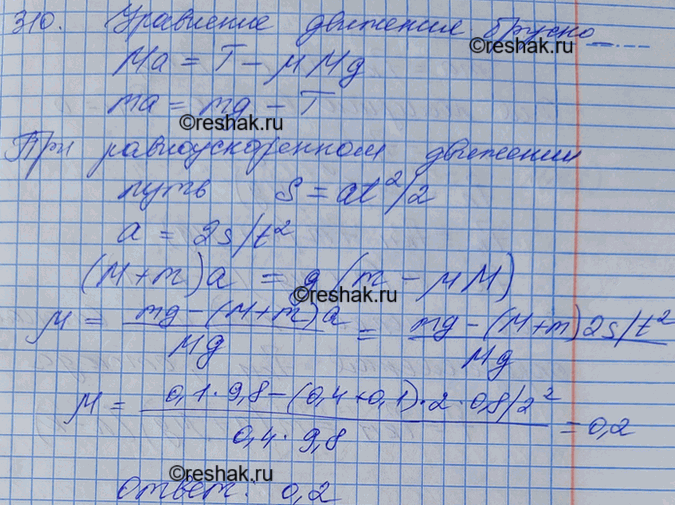 310. Уравнение движения бруско
©reshak.ru
Ma = T − μMg
ma = mg − T
©reshak.ru
При равноускоренном движении
путь S = at²/2
a = 2s/t²
(M+m)a = g(m − μM)
©reshak.ru
μ = mg−(M+m)a / Mg = mg−(M+m)2s/t² / Mg
©reshak.ru
μ = 0,1·9,8−(0,4+0,1)·2·0,8/2² / 0,4·9,8 = 0,2
©reshak.ru
ответ: 0,2